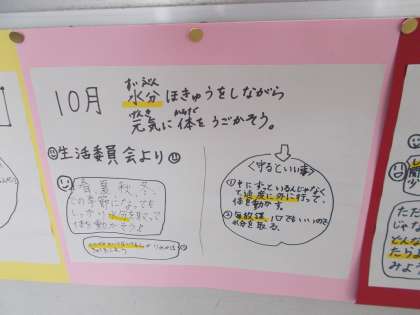 10月
すいぶん
水分ほきゅうをしながら
げんき からだ
元気に体をうごかそう。
生活委員会より
春夏秋冬、
この季節になっても
しっかり水分を取って
体を動かそうよ
守るといい事
①中にずっといるんじゃなく
て適度に外に行って、
体を動かす。
②毎放課、1口でもいいので
水分を取る。